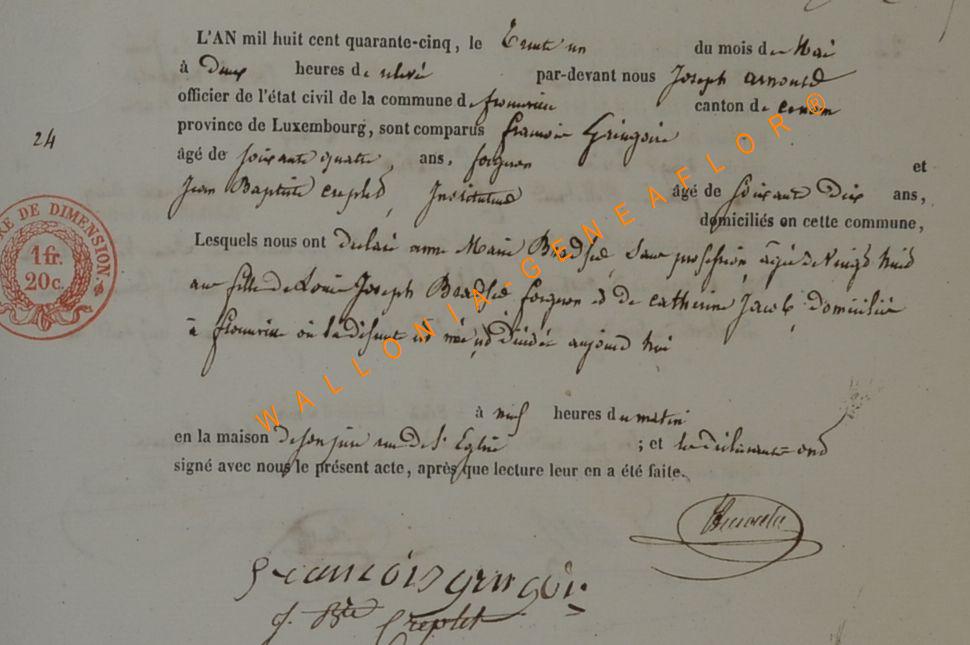 L'AN mil huit cent quarante-cinq, le Trent un du mois de Mai
à Deux heures de relevé par-devant nous Joseph arnould
officier de l'état civil de la commune de flouvrin canton de
province de Luxembourg, sont comparus francois Gringoire
24
âgé de soixante quatre, ans, forgeron et
Jean Baptiste creplet, Instituteur âgé de soixante Dix ans,
domiciliés en cette commune,
RE DE DIMENSION
1 fr.
20 c.
Lesquels nous ont declaré que Marie sans profession agée de Vingt huit
ans fille de Louis Joseph forgeron et de catherine Jacob, domiciliée
à où la défunte est née, est décédée aujourd hui
à neuf heures du matin
en la maison de son père rue de l'Eglise ; et les déclarants ont
signé avec nous le présent acte, après que lecture leur en a été faite.
francois gringoire
J. Bte Creplet
WALLONIA-GENEAFLOR ®